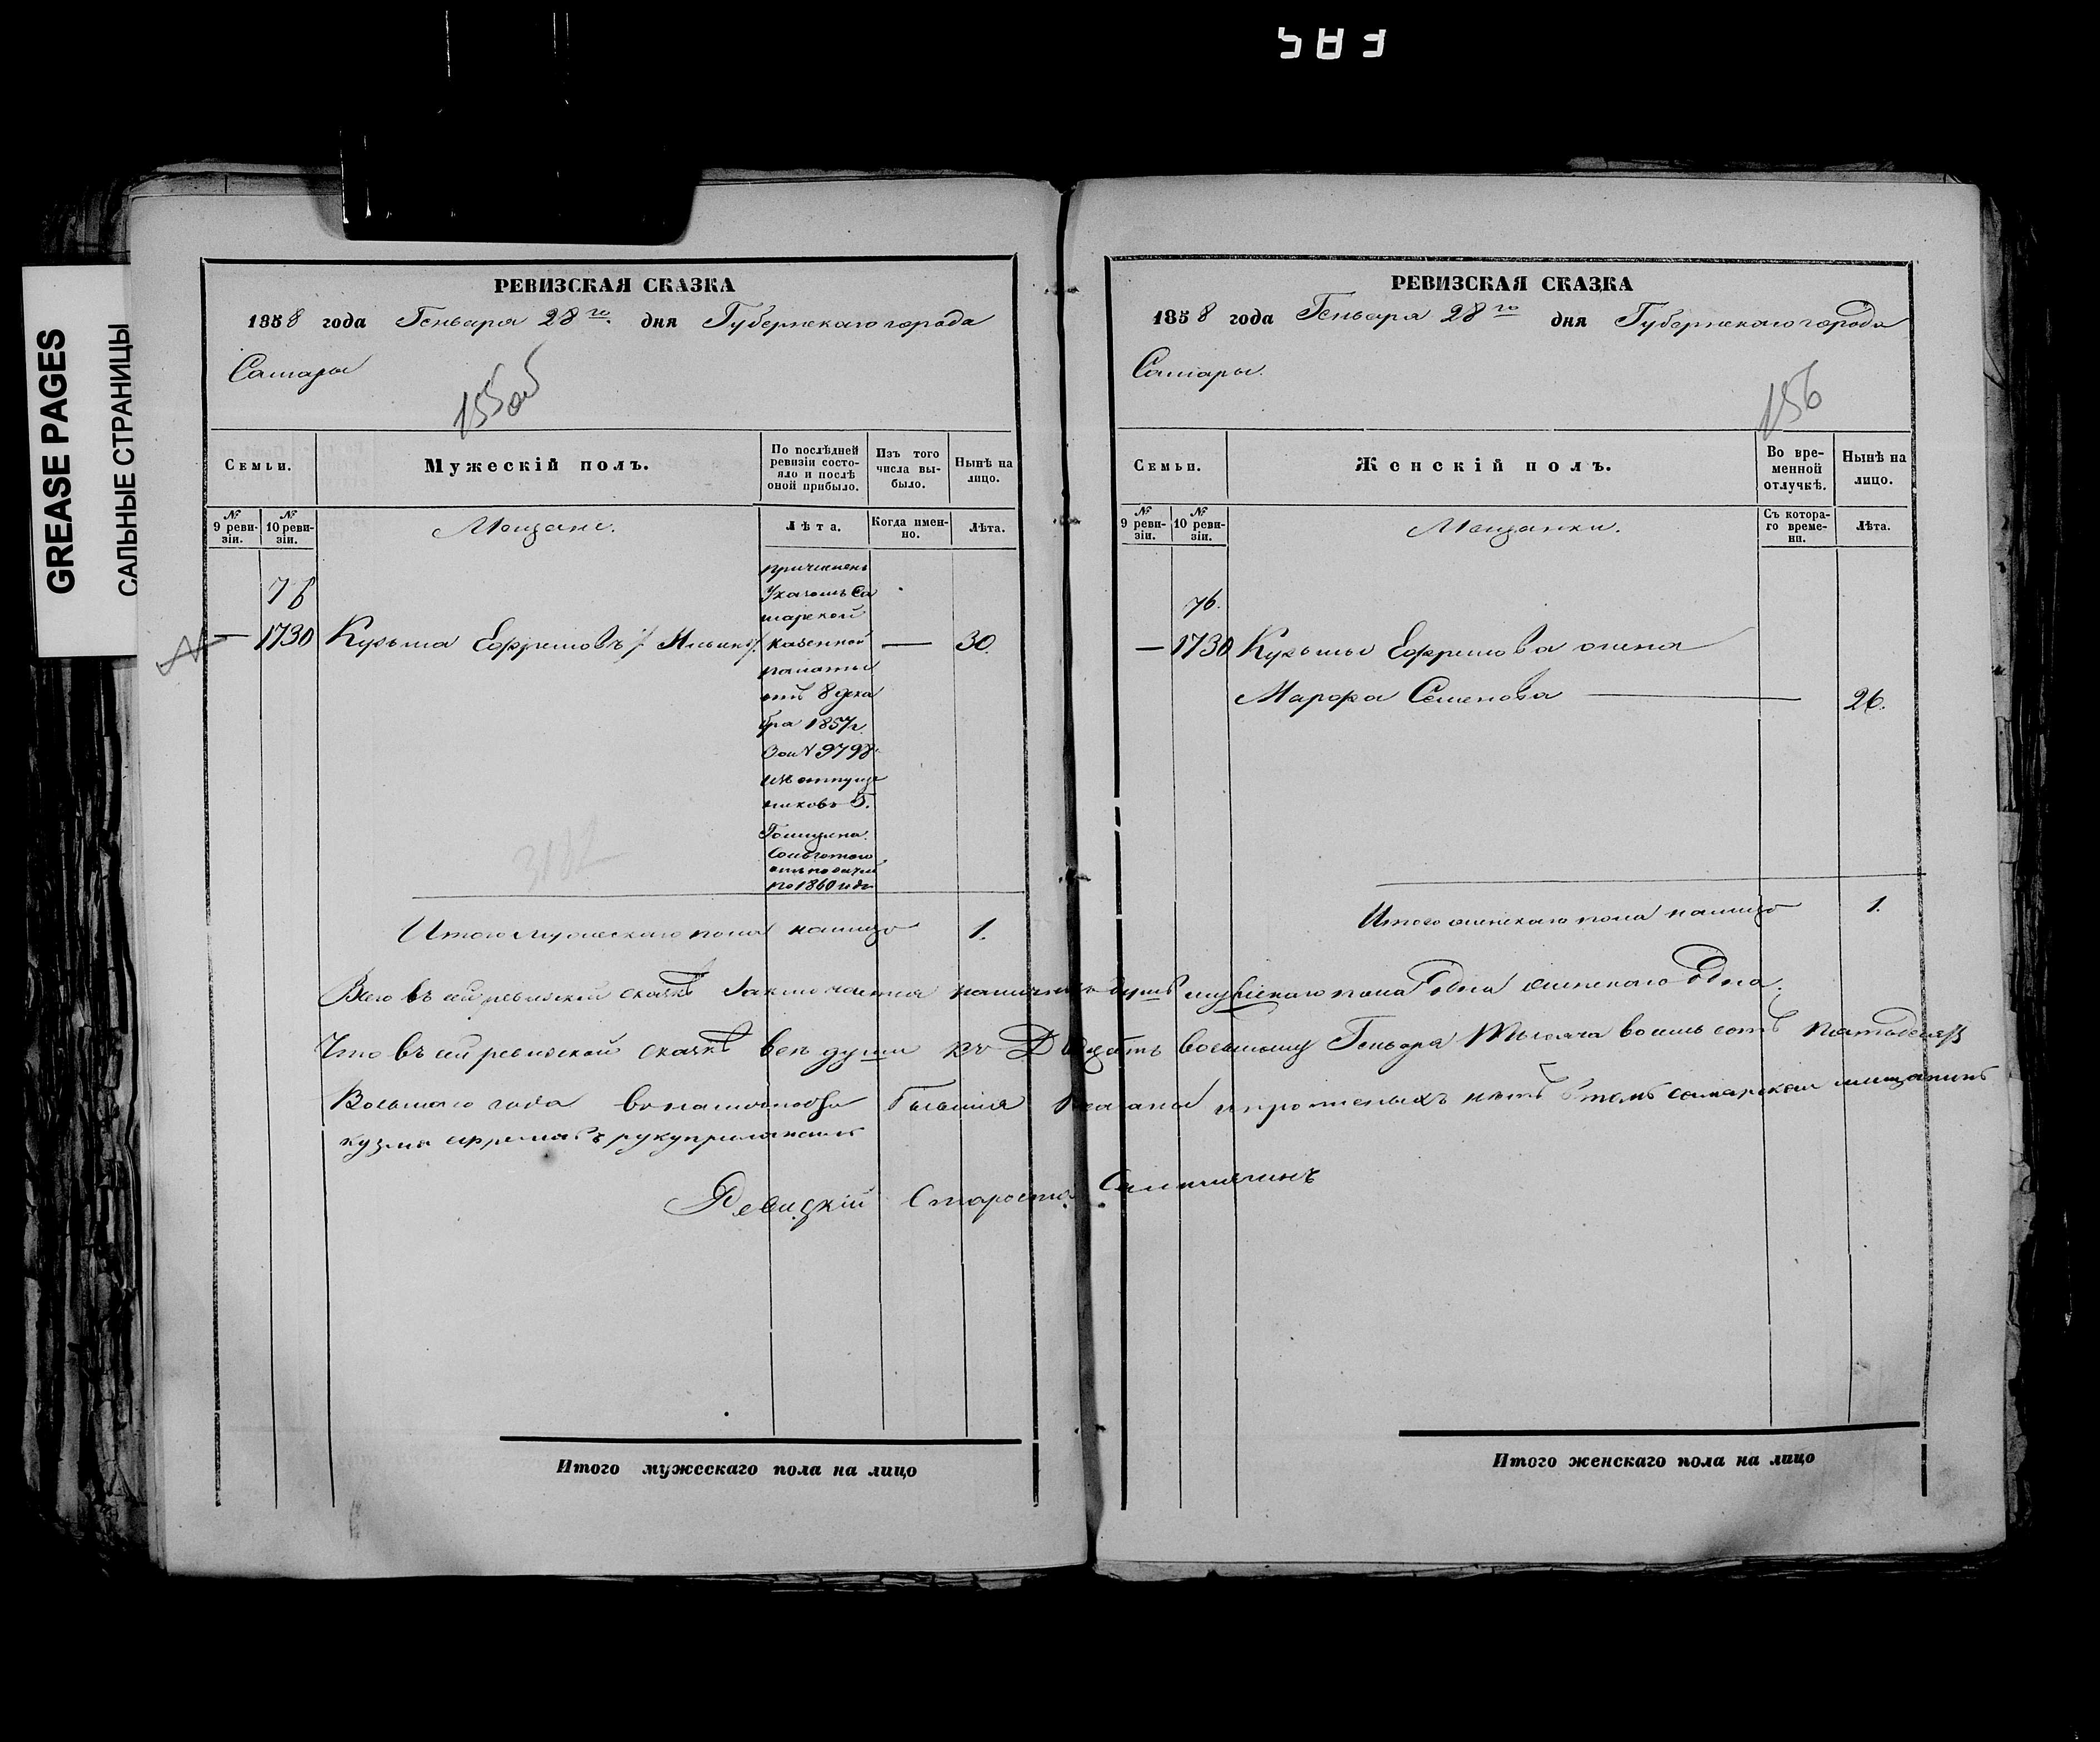 583
GREASE PAGES
САЛЬНЫЕ СТРАНИЦЫ
РЕВИЗСКАЯ СКАЗКА
1858 года Генваря 28го дня Губернскаго города
Самары
155об
Семьи.
Мужескій полъ.
По послѣдней ревизіи состояло и послѣ оной прибыло.
Изъ того числа выбыло.
Нынѣ на лицо.
№ 9 ревизіи.
№ 10 ревизіи.
Мещане.
Лѣта.
Когда именно.
Лѣта.
76
— 1730 Кузьма Ефремовъ / Ильинъ /
— 30.
причисленъ
Указомъ Са
марской
казенной
палаты
отъ 8 дека
бря 1857 г.
За № 9798
изъ отпущен
никовъ Г.
Голицына.
Сольготою
отъ податей
по 1860 годъ
3182
Итого мужескаго пола налицо 1.
РЕВИЗСКАЯ СКАЗКА
1858 года Генваря 28го дня Губернскаго города
Самары.
156
Семьи.
Женскій полъ.
Во временной отлучкѣ.
Нынѣ на лицо.
№ 9 ревизіи.
№ 10 ревизіи.
Мещанки.
Съ котораго времени.
Лѣта.
76.
— 1730 Кузьмы Ефремова жена
Марфа Семенова — 26.
Итого женскаго пола налицо 1.
Всего въ сей ревизской сказкѣ Заключается наличныхъ душъ мужескаго пола Одна женскаго Одна.
Что въ сей ревизской сказкѣ всѣ души къ Двадцать восьмому Генваря Тысяча восемь сотъ пятьдесятъ
Восьмаго года
показаны и прописныхъ нѣтъ въ томъ самарской мещанинъ
кузма ефремовъ руку приложилъ
Староста
Итого мужескаго пола на лицо
Итого женскаго пола на лицо